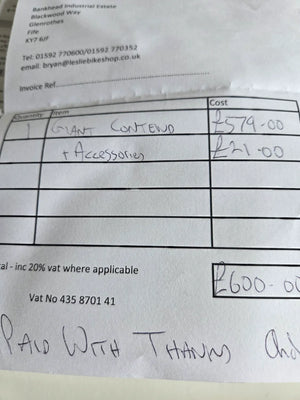 Bankhead Industrial Estate
Blackwood Way
Glenrothes
Fife
KY7 6JF
Tel: 01592 770600/01592 770352
email: bryan@lesliebikeshop.co.uk
Invoice Ref
Quantity Item Cost
1 GIANT CONTEND £579-00
+ Accessories £21-00
al - inc 20% vat where applicable £600-00
Vat No 435 8701 41
PAID WITH THANKS